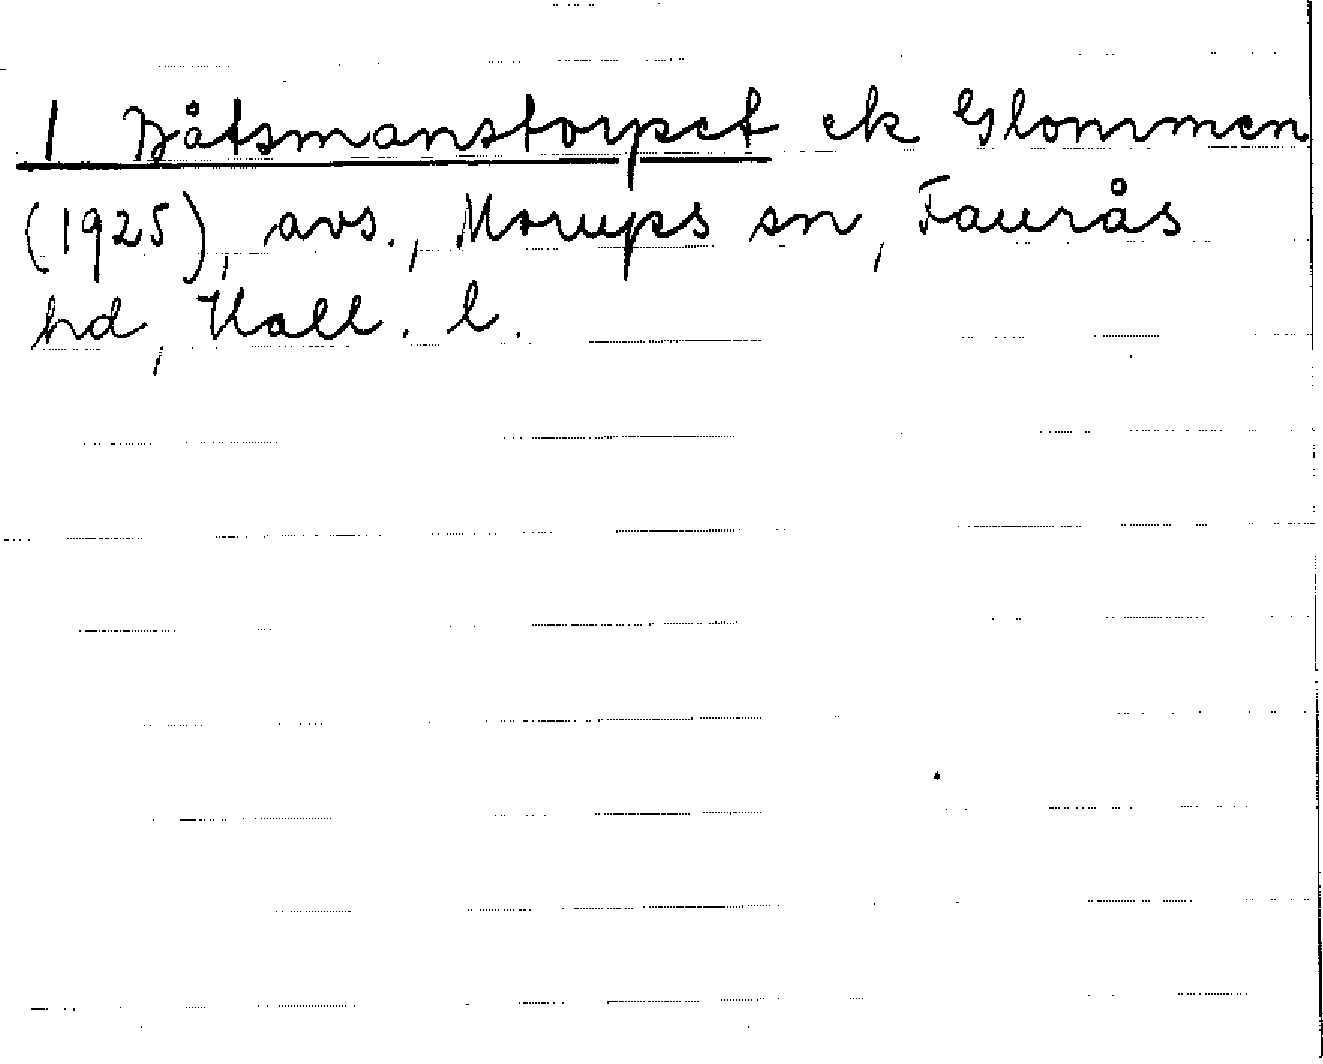 1 Båtsmanstorpet ek Glommen
(1925), avs., Morups sn, Faurås
hd, Hall. l.